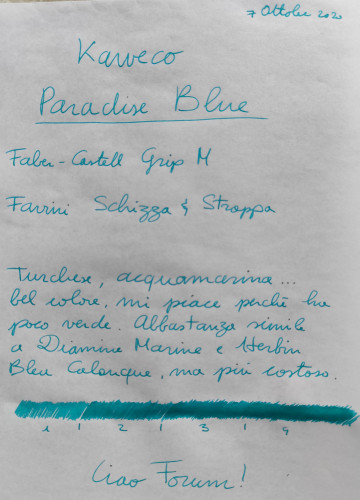 7 Ottobre 2020
Kaweco
Paradise Blue
Faber-Castell Grip M
Favini Schizza & Strappa
Turchese, acquamarina...
bel colore, mi piace perchè ha
poco verde. Abbastanza simile
a Diamine Marine e Herbin
Bleu Calanque, ma più costoso.
1 | 2 | 3 | 4
Ciao Forum!